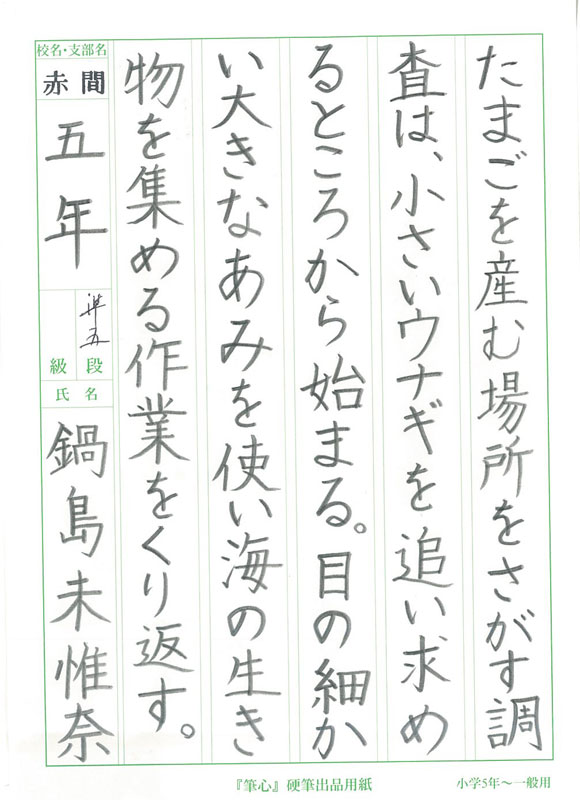 たまごを産む場所をさがす調
査は、小さいウナギを追い求め
るところから始まる。目の細か
い大きなあみを使い海の生き
物を集める作業をくり返す。
校名・支部名
赤間
五年
準五
段
級
氏名
鍋島未惟奈
『筆心』硬筆出品用紙
小学5年〜一般用